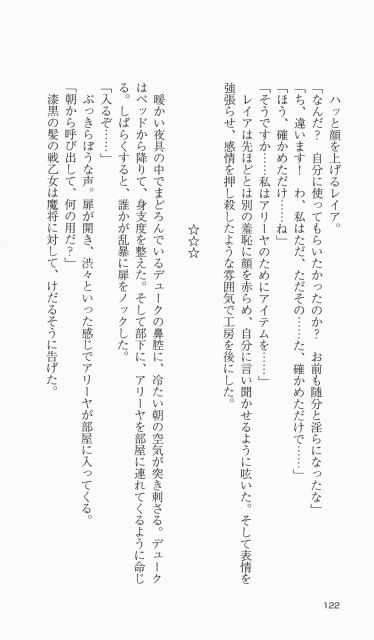 ハッと顔を上げるレイア。
「なんだ？　自分に使ってもらいたかったのか？　お前も随分と淫らになったな」
「ち、違います！　わ、私はただ、ただその……た、確かめただけで……」
「ほう、確かめただけ……ね」
「そうですか……私はアリーヤのためにアイテムを……」
レイアは先ほどとは別の羞恥に顔を赤らめ、自分に言い聞かせるように呟いた。そして表情を
強張らせ、感情を押し殺したような雰囲気で工房を後にした。
☆☆☆
暖かい夜具の中でまどろんでいるデュークの鼻腔に、冷たい朝の空気が突き刺さる。デューク
はベッドから降りて、身支度を整えた。そして部下に、アリーヤを部屋に連れてくるように命じ
る。しばらくすると、誰かが乱暴に扉をノックした。
「入るぞ……」
ぶっきらぼうな声。扉が開き、渋々といった感じでアリーヤが部屋に入ってくる。
「朝から呼び出して、何の用だ？」
漆黒の髪の戦乙女は魔将に対して、けだるそうに告げた。
122